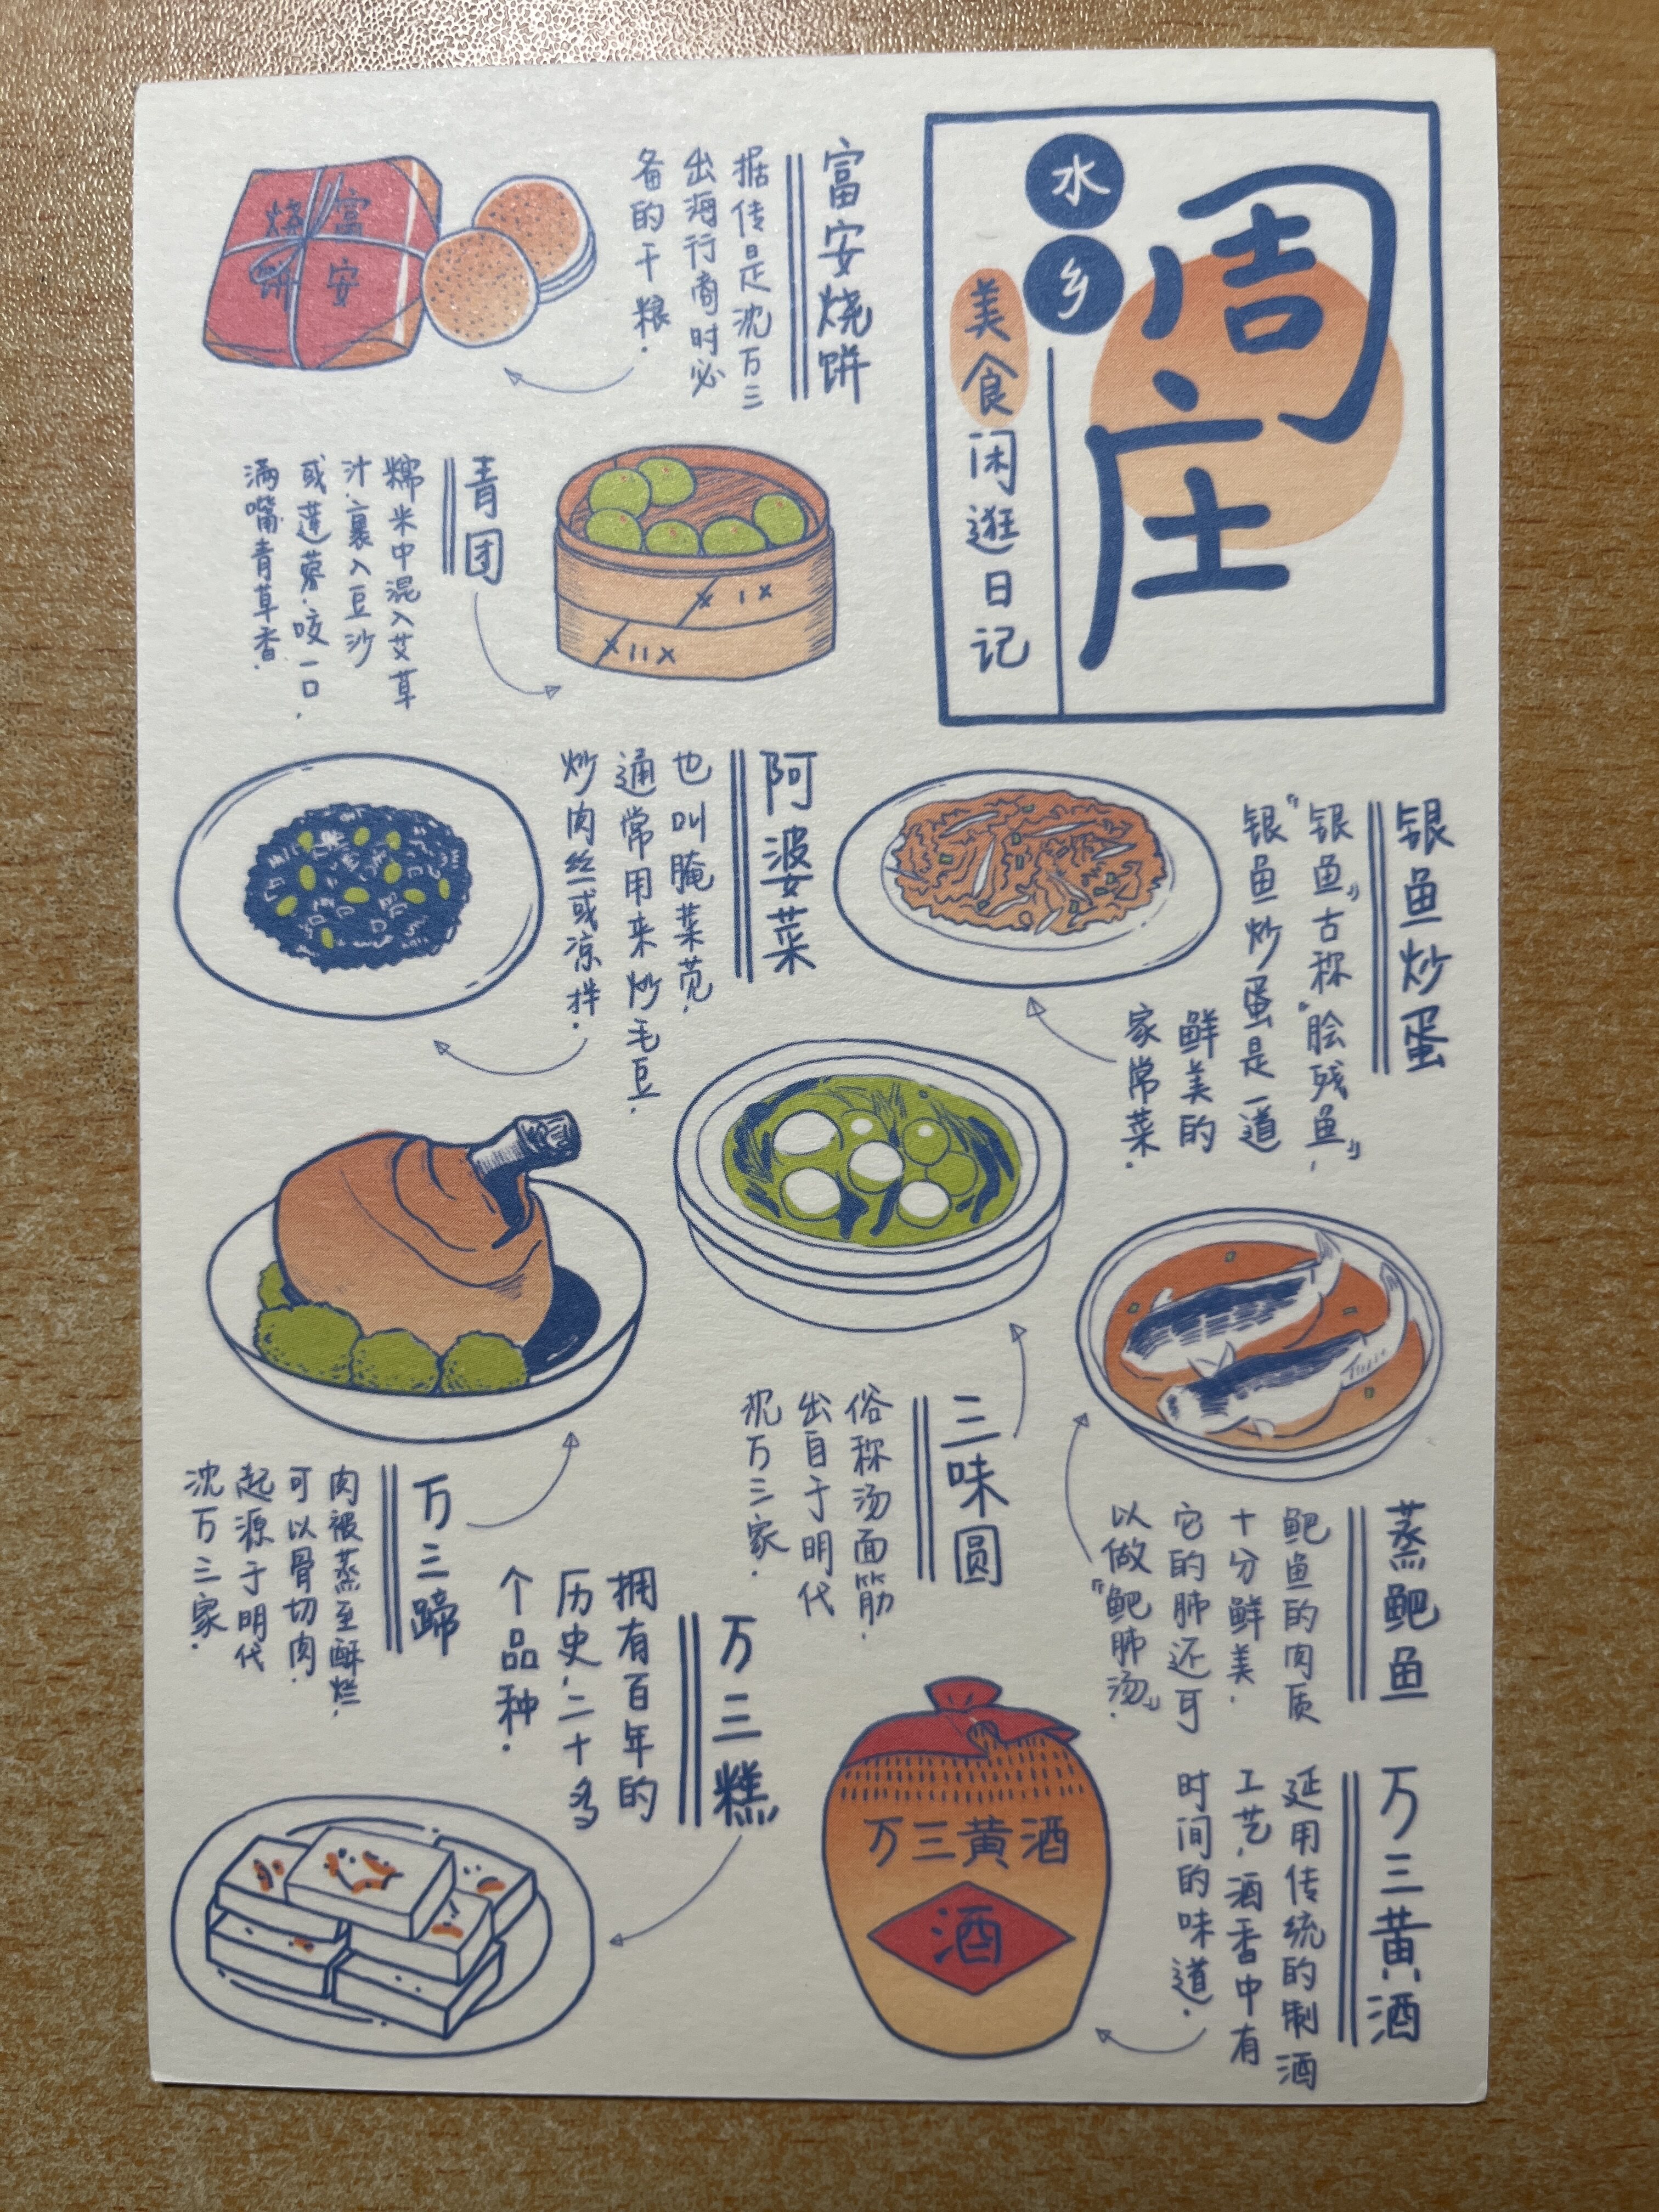 周庄
水乡
美食闲逛日记
富安烧饼
据传是沈万三
出海行商时必
备的干粮.
富安
烧饼
青团
糯米中混入艾草
汁.裹入豆沙
或莲蓉.咬一口.
满嘴青草香.
银鱼炒蛋
“银鱼”古称“脍残鱼”,
银鱼炒蛋是一道
鲜美的
家常菜.
阿婆菜
也叫腌菜苋.
通常用来炒毛豆.
炒肉丝或凉拌.
蒸鲃鱼
鲃鱼的肉质
十分鲜美.
它的肺还可
以做“鲃肺汤”.
三味圆
俗称汤面筋.
出自于明代
沈万三家.
万三蹄
肉被蒸至酥烂.
可以骨切肉.
起源于明代
沈万三家.
万三糕
拥有百年的
历史.二十多
个品种.
万三黄酒
延用传统的制酒
工艺.酒香中有
时间的味道.
万三黄酒
酒